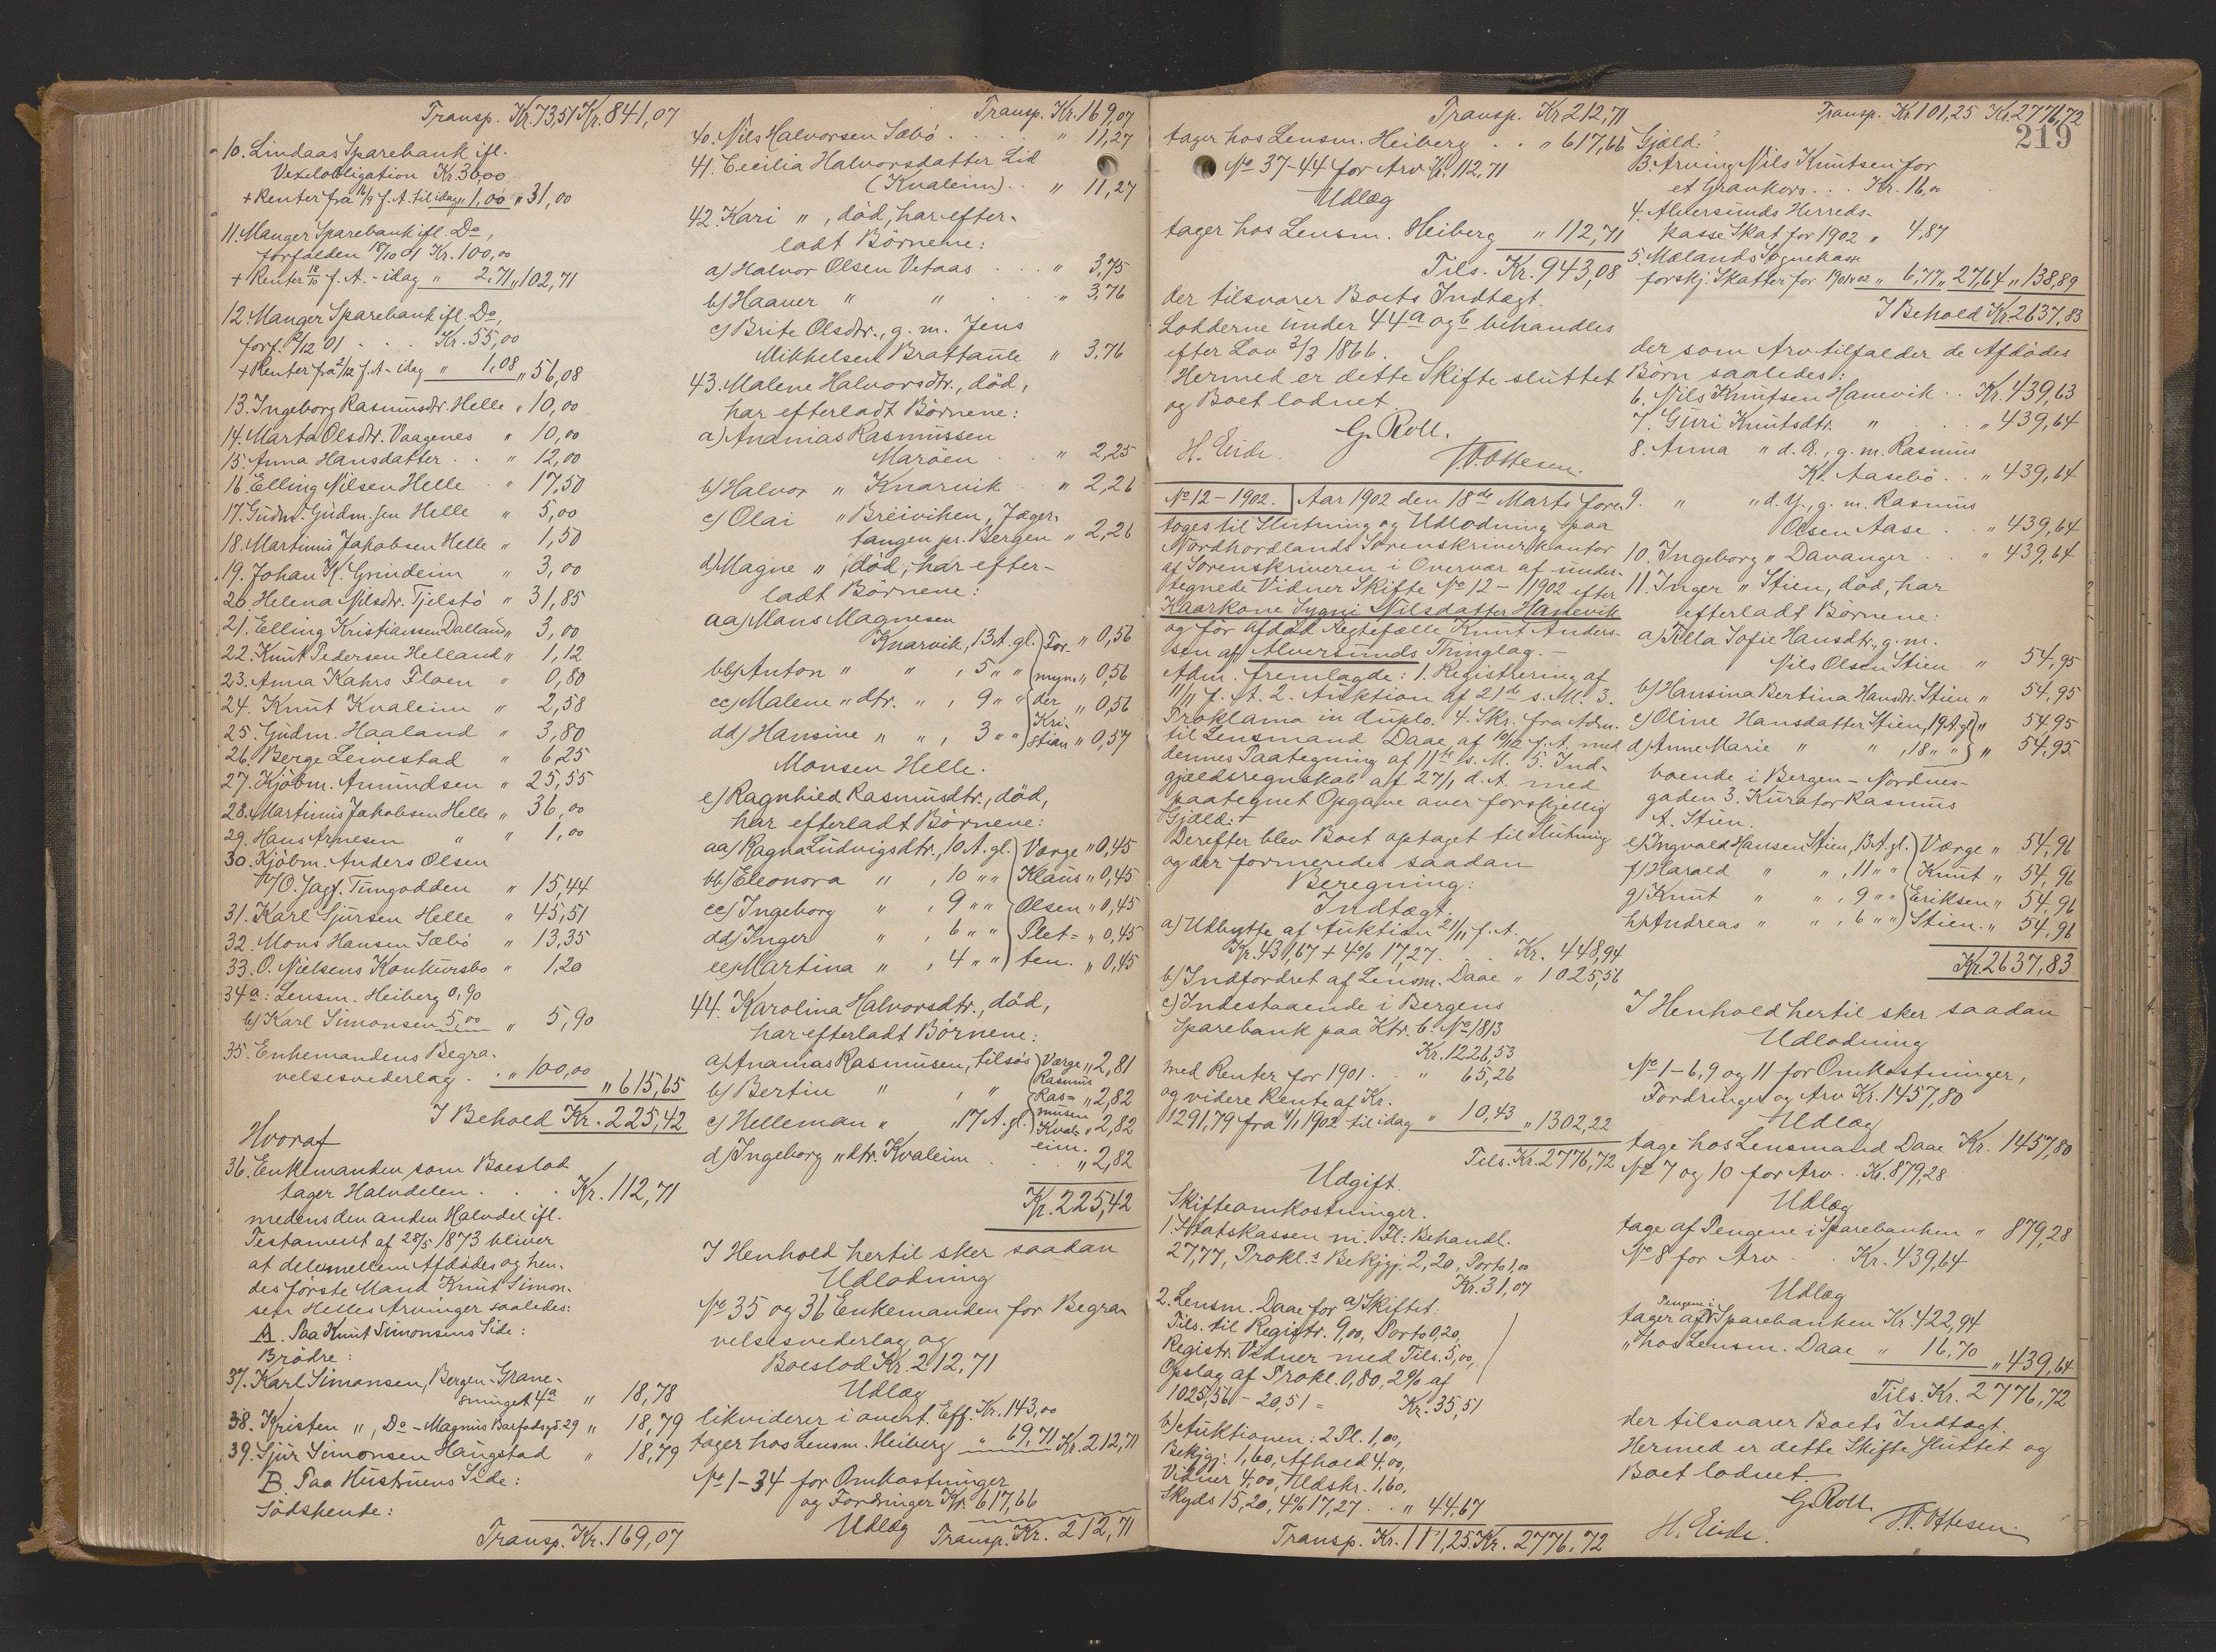 Transp. Kr. 73,51 Kr. 841,07
10. Lindaas Sparebank ifl.
Vexelobligation Kr. 30,00
+ Renter fra 16/9 f. A. til idag " 1,00 " 31,00
11. Manger Sparebank ifl. Do,
forfalden 18/10 01 Kr. 100,00
+ Renter 18/10 f. A. - idag " 2,71 " 102,71
12. Manger Sparebank ifl. Do,
forf. 2/12 01 . . . Kr. 55,00
+ Renter fra 2/12 f. A - idag " 1,08 " 56,08
13. Ingeborg Rasmusdr. Helle " 10,00
14. Marta Olsdr. Vaagenes " 10,00
15. Anna Hansdatter . . " 12,00
16. Elling Nilsen Helle " 17,50
17. Gudm. Gudm.sen Helle " 5,00
18. Martinus Jakobsen Helle " 1,50
19. Johan K. Grindeim " 3,00
20. Helena Nilsdr. Tjelstö " 31,85
21. Elling Kristiansen Dalland " 3,00
22. Knut Pedersen Helland " 1,12
23. Anna Kahrs Floen " 0,80
24. Knut Kvaleim " 2,58
25. Gudm. Haaland " 3,80
26. Berge Leivestad " 6,25
27. Kjöbm. Amundsen " 25,55
28. Martinus Jakobsen Helle " 36,00
29. Hans Arnesen " " 1,00
30. Kjöbm. Anders Olsen
v/O. Jagf. Tungodden " 15,44
31. Karl Sjursen Helle " 45,51
32. Mons Hansen Sæbö " 13,35
33. O. Nielsens Konkursbo " 1,20
34a: Lensm. Heiberg 0,90
b) Karl Simonsen 5,00 " 5,90
35. Enkemandens Begra-
velsesvederlag . . " 100,00 " 615,65
I Behold Kr. 225,42
Hvoraf
36. Enkemanden som Boeslod
tager Halvdelen . . . Kr. 112,71
medens den anden Halvdel ifl.
Testament af 28/5 1873 bliver
at dele mellem Afdødes og hen-
des første Mand Knut Simon-
sen Helles Arvinger saaledes:
A. Paa Knut Simonsens Side:
Brødre:
37. Karl Simonsen, Bergen - Grane-
smuget 4a " 18,78
38. Kristen ", Do - Magnus Barfodsgd. 29 " 18,79
39. Sjur Simonsen Haugstad " 18,79
B. Paa Hustruens Side:
Sødskende:
Transp. Kr. 169,07
Transp. Kr. 169,07
40. Nils Halvorsen Sæbö . . . . " 11,27
41. Cecilia Halvorsdatter Lid
(Kvaleim) . . " 11,27
42. Kari ", død, har efter-
ladt Börnene:
a) Halvor Olsen Vetaas . . . " 3,75
b) Haaver " " . . . " 3,76
c) Brite Olsdtr., g. m. Jens
Mikkelsen Brattaule " 3,76
43. Malene Halvorsdtr., død,
har efterladt Börnene:
a) Ananias Rasmussen
Maröen . . " 2,25
b) Halvor " Knarvik . " 2,26
c) Olai " Breiviken, Jæger-
tangen pr. Bergen " 2,26
d) Magne " , død, har efter-
ladt Börnene:
aa) Mons Magnesen
Knarvik, 13 A. gl. For- " 0,56
bb) Anton " " , 5 " " myn- " 0,56
cc) Malene " dtr. " , 9 " " der " 0,56
dd) Hansine " " , 3 " " Kri-stian " 0,57
Monsen Helle.
e) Ragnhild Rasmusdtr., död,
har efterladt Börnene:
aa) Ragna Ludvigsdtr., 10 A. gl. Værge " 0,45
bb) Eleonora " , 10 " " Klaus " 0,45
cc) Ingeborg " , 9 " " Olsen " 0,45
dd) Inger " , 6 " " Plet= " 0,45
ee) Martina " , 4 " " ten. " 0,45
44. Karolina Halvorsdtr., död,
har efterladt Börnene:
a) Ananias Rasmusen, tilsøs Værge " 2,81
b) Bertin " " Rasmus Ras= " 2,82
c) Helleman " , 17 A. gl. musen Kval- " 2,82
d) Ingeborg " dtr. Kvaleim . . eim. " 2,82
Kr. 225,42
I Henhold hertil sker saadan
Udlodning
No 35 og 36 Enkemanden for Begra-
velsesvederlag og
Boeslod Kr. 212,71
Udlæg
likviderer i overt. Eff. Kr. 143,00
tager hos Lensm. Heiberg " 69,71 Kr. 212,71
No 1-34 for Omkostninger
og Fordringer Kr. 617,66
Udlæg Transp. Kr. 212,71
Transp. Kr. 212,71
tager hos Lensm. Heiberg . . " 617,66
No 37-44 for Arv Kr. 112,71
Udlæg
tager hos Lensm. Heiberg " 112,71
Tils. Kr. 943,08
der tilsvarer Boets Indtægt.
Lodderne under 44a og b behandles
efter Lov 3/3 1866.
Hermed er dette Skifte sluttet
og Boet lodnet.
G. Roll.
H. Eide. W. Ottesen.
No 12 - 1902. Aar 1902 den 18de Marts fore-
toges til Slutning og Udlodning paa
Nordhordlands Sorenskriverkontor
af Sorenskriveren i Overvær af under-
tegnede Vidner Skifte No 12 - 1902 efter
Kaarkone Sygni Nilsdatter Hanevik
og før afdød Ægtefælle Knut Anders-
sen af Alversunds Thinglag. -
Adm. fremlagde: 1. Registrering af
11/11 f. A. 2. Auktion af 21de s. M. 3.
Proklama in duplo. 4. Skr. fra Adm.
til Lensmand Daae af 10/12 f. A. med
dennes Paategning af 11te s. M. 5. Ind-
gjældsregnskab af 27/1 d. A. med
paategnet Opgave over forskjellig
Gjæld. -
Derefter blev Boet optaget til Slutning
og der formeredes saadan
Beregning:
Indtægt.
a) Udbytte af Auktion 21/11 f. A.
Kr. 431,67 + 4% 17,27 . . . Kr. 448,94
b) Indfordret af Lensm. Daae " 1025,56
c) Indestaaende i Bergens
Sparebank paa Ktr. b. No 1813
Kr. 1226,53
med Renter for 1901 . . " 65,26
og videre Rente af Kr.
1291,79 fra 1/1 1902 til idag " 10,43 " 1302,22
Tils. Kr. 2776,72
Udgift.
Skifteomkostninger.
1. Statskassen m. Fl: Behandl.
27,77, Prokl.s Bekjgj. 2,20, Porto 1,00
Kr. 31,07
2. Lensm. Daae for a) Skiftet:
Tils. til Registr. 9,00, Porto 0,20,
Registr. Vidner med Tils. 5,00,
Opslag af Prokl. 0,80, 2% af
1025,56 - 20,51 = Kr. 35,51
b) Auktionen: 2 Pl. 1,00,
Bekjgj. 1,60, Afhold 4,00,
Vidner 4,00, Udskr. 1,60,
Skyds 15,20, 4% 17,27 . . " 44,67
Transp. Kr. 111,25 Kr. 2776,72
Transp. Kr. 101,25 Kr. 2776,72
219
Gjæld:
3. Arving Nils Knutsen for
et Gravkors . . . Kr. 11,00
4. Alversunds Herreds-
kasse Skat for 1902 " 4,87
5. Mælands Sognekasse
forskj. Skatter for 1901-02 " 6,77 " 27,64 " 138,89
I Behold Kr. 2637,83
der som Arv tilfalder de Afdødes
Børn saaledes:
6. Nils Knutsen Hanevik . . Kr. 439,63
7. Guri Knutsdtr. " . . " 439,64
8. Anna " d. Æ., g. m. Rasmus
K. Aasebö . . " 439,64
9. " " d. Y., g. m. Rasmus
Olsen Aase . " 439,64
10. Ingeborg " Davanger . . " 439,64
11. Inger " Stien, død, har
efterladt Børnene:
a) Alla Sofie Hansdtr., g. m.
Nils Olsen Stien " 54,95
b) Hansina Bertina Hansdtr. Stien " 54,95
c) Oline Hansdatter Stien, 19 A. gl. " 54,95
d) Anne Marie " " , 18 " " " 54,95
boende i Bergen - Nordnes-
gaden 3. Kurator Rasmus
A. Stien.
e) Ingvald Hansen Stien, 13 A. gl. Værge " 54,96
f) Harald " " , 11 " " Knut " 54,96
g) Knut " " , 9 " " Eriksen " 54,96
h) Andreas " " , 6 " " Stien. " 54,96
Kr. 2637,83
I Henhold hertil sker saadan
Udlodning
No 1-6, 9 og 11 for Omkostninger,
Fordringer og Arv Kr. 1457,80
Udlæg
tage hos Lensmand Daae Kr. 1457,80
No 7 og 10 for Arv . . Kr. 879,28
Udlæg
tage af Pengene i Sparebanken " 879,28
No 8 for Arv . . Kr. 439,64
Udlæg
tager af Pengene i Sparebanken Kr. 422,94
" hos Lensm. Daae " 16,70 " 439,64
Tils. Kr. 2776,72
der tilsvarer Boets Indtægt.
Hermed er dette Skifte sluttet og
Boet lodnet.
G. Roll.
H. Eide. W. Ottesen